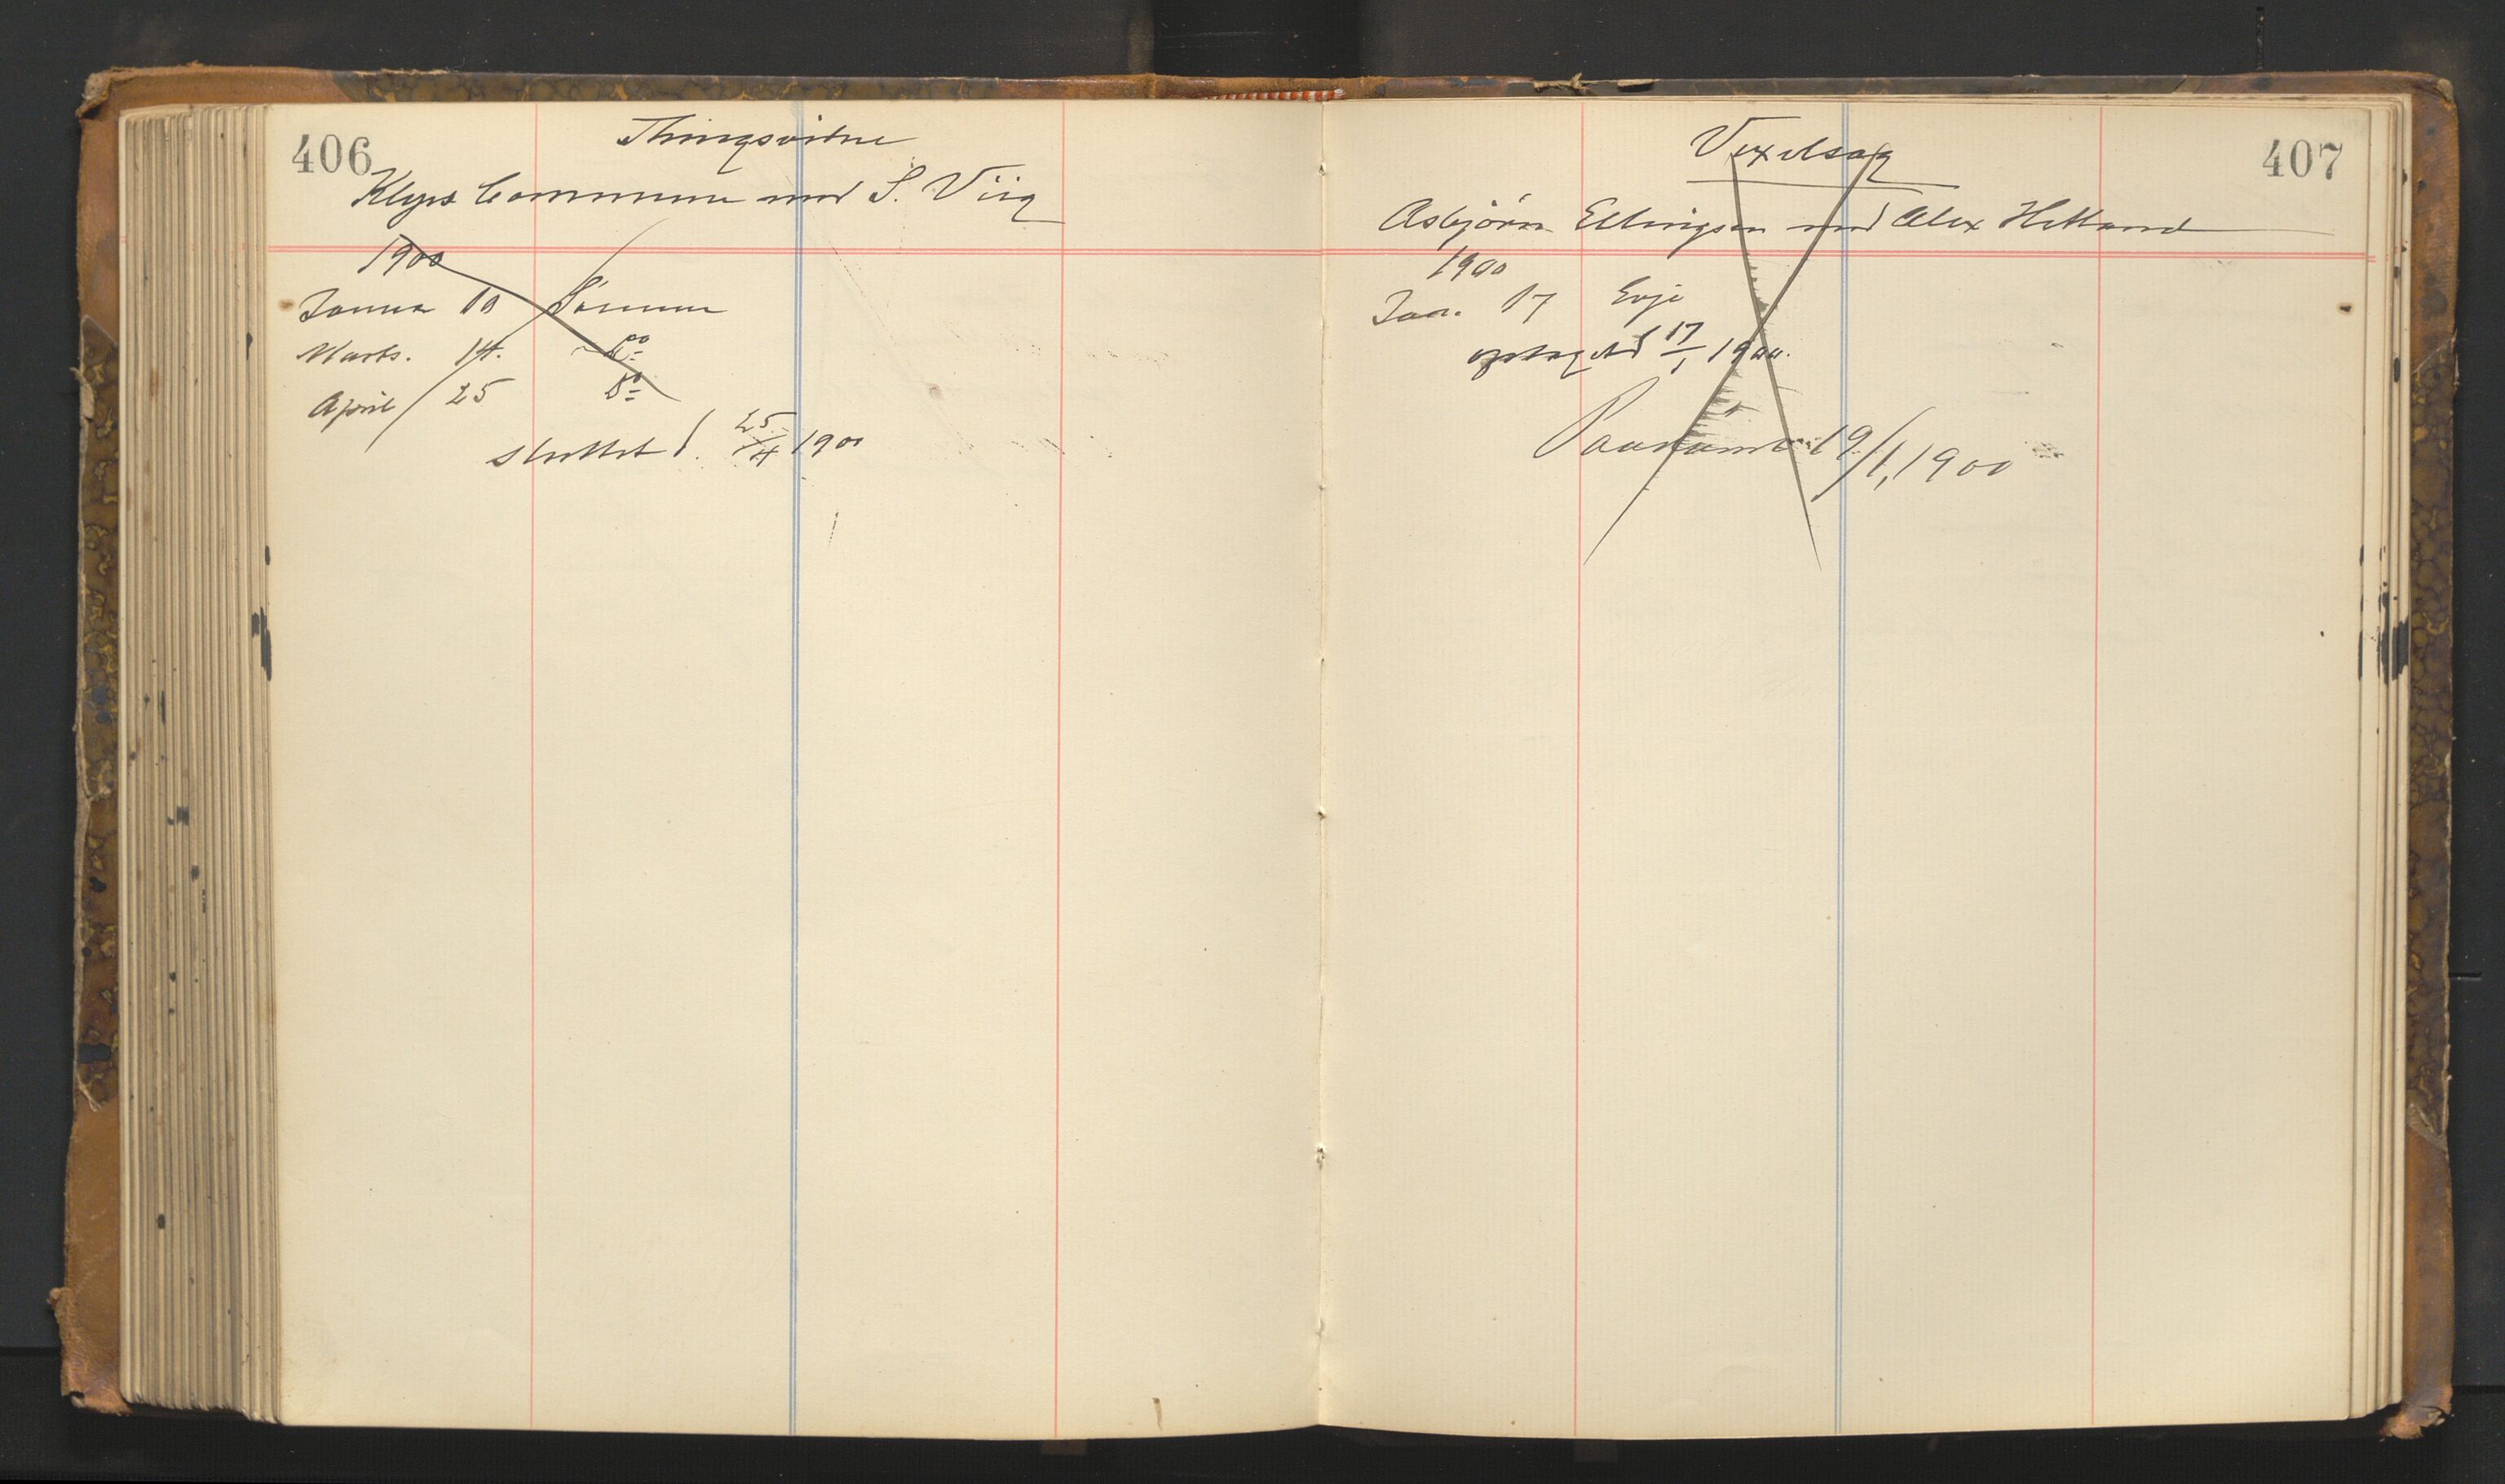 406
Thingsvidne
Klyps Commune mod S. Viig
1900
Januar 10 Sømme
Marts. 14. do
April 25 do
sluttet d. 25/4 1900
407
Vexelsag
Asbjørn Ellingsen mod Alex Hetland
1900
Jan. 17 Evje
optaget d 17/1 1900.
Paakjendt 19/1, 1900